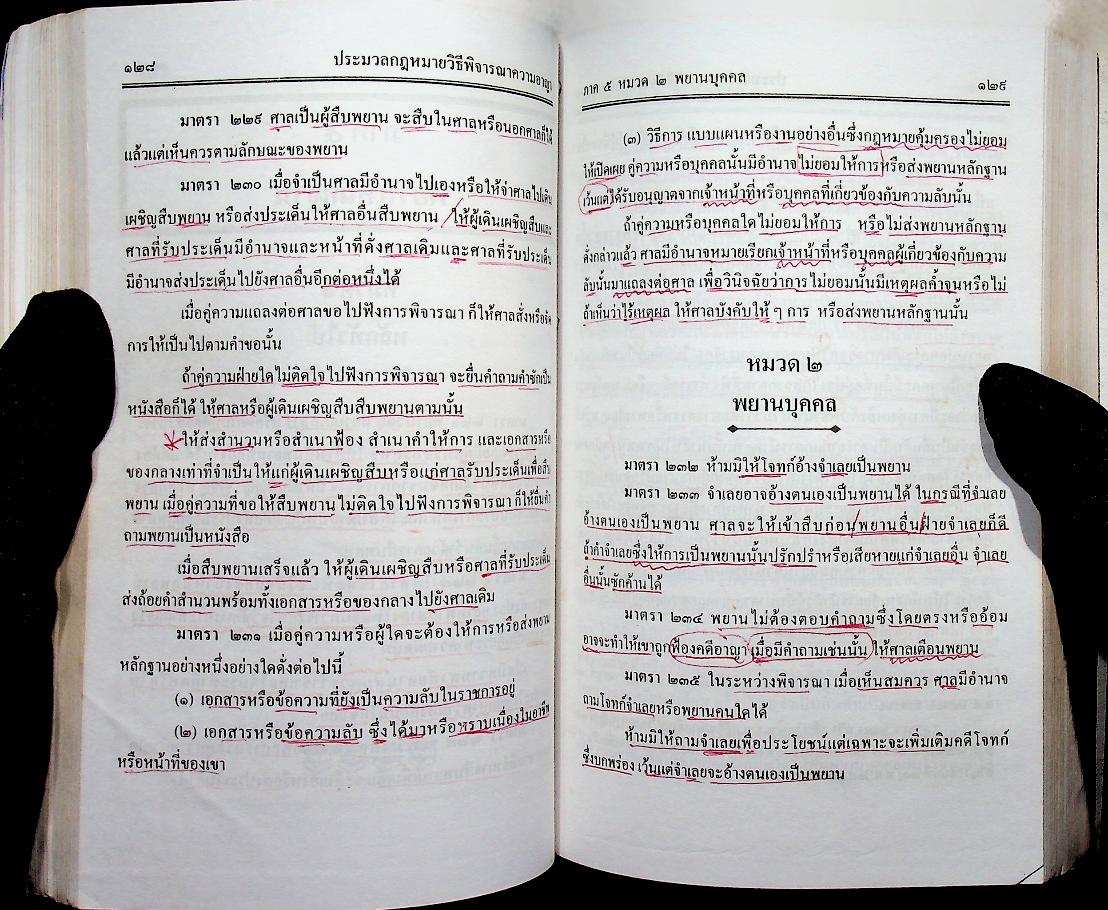 ๑๒๘
ประมวลกฎหมายวิธีพิจารณาความอาญา
มาตรา ๒๒๙ ศาลเป็นผู้สืบพยาน จะสืบในศาลหรือนอกศาลก็ได้
แล้วแต่เห็นควรตามลักษณะของพยาน
มาตรา ๒๓๐ เมื่อจำเป็นศาลมีอำนาจไปเองหรือให้จ่าศาลไปเดิน
เผชิญสืบพยาน หรือส่งประเด็นให้ศาลอื่นสืบพยาน ให้ผู้เดินเผชิญสืบและ
ศาลที่รับประเด็นมีอำนาจและหน้าที่ดั่งศาลเดิมและศาลที่รับประเด็น
มีอำนาจส่งประเด็นไปยังศาลอื่นอีกต่อหนึ่งได้
เมื่อคู่ความแถลงต่อศาลขอไปฟังการพิจารณา ก็ให้ศาลสั่งหรือจัด
การให้เป็นไปตามคำขอนั้น
ถ้าคู่ความฝ่ายใดไม่ติดใจไปฟังการพิจารณา จะยื่นคำถามคำซักเป็น
หนังสือก็ได้ ให้ศาลหรือผู้เดินเผชิญสืบสืบพยานตามนั้น
ให้ส่งสำนวนหรือสำเนาฟ้อง สำเนาคำให้การ และเอกสารหรือ
ของกลางเท่าที่จำเป็นให้แก่ผู้เดินเผชิญสืบหรือแก่ศาลรับประเด็นเพื่อสืบ
พยาน เมื่อคู่ความที่ขอให้สืบพยานไม่ติดใจไปฟังการพิจารณา ก็ให้ยื่นคำ
ถามพยานเป็นหนังสือ
เมื่อสืบพยานเสร็จแล้ว ให้ผู้เดินเผชิญสืบหรือศาลที่รับประเด็น
ส่งถ้อยคำสำนวนพร้อมทั้งเอกสารหรือของกลางไปยังศาลเดิม
มาตรา ๒๓๑ เมื่อคู่ความหรือผู้ใดจะต้องให้การหรือส่งพยาน
หลักฐานอย่างหนึ่งอย่างใดดั่งต่อไปนี้
(๑) เอกสารหรือข้อความที่ยังเป็นความลับในราชการอยู่
(๒) เอกสารหรือข้อความลับ ซึ่งได้มาหรือทราบเนื่องในอาชีพ
หรือหน้าที่ของเขา
ภาค ๕ หมวด ๒ พยานบุคคล
๑๒๙
(๓) วิธีการ แบบแผนหรืองานอย่างอื่นซึ่งกฎหมายคุ้มครองไม่ยอม
ให้เปิดเผย คู่ความหรือบุคคลนั้นมีอำนาจไม่ยอมให้การหรือส่งพยานหลักฐาน
เว้นแต่ได้รับอนุญาตจากเจ้าหน้าที่หรือบุคคลที่เกี่ยวข้องกับความลับนั้น
ถ้าคู่ความหรือบุคคลใดไม่ยอมให้การ หรือไม่ส่งพยานหลักฐาน
ดั่งกล่าวแล้ว ศาลมีอำนาจหมายเรียกเจ้าหน้าที่หรือบุคคลผู้เกี่ยวข้องกับความ
ลับนั้นมาแถลงต่อศาล เพื่อวินิจฉัยว่าการไม่ยอมนั้นมีเหตุผลค้ำจุนหรือไม่
ถ้าเห็นว่าไร้เหตุผล ให้ศาลบังคับให้ ๆ การ หรือส่งพยานหลักฐานนั้น
หมวด ๒
พยานบุคคล
มาตรา ๒๓๒ ห้ามมิให้โจทก์อ้างจำเลยเป็นพยาน
มาตรา ๒๓๓ จำเลยอาจอ้างตนเองเป็นพยานได้ ในกรณีที่จำเลย
อ้างตนเองเป็นพยาน ศาลจะให้เข้าสืบก่อนพยานอื่นฝ่ายจำเลยก็ดี
ถ้าคำจำเลยซึ่งให้การเป็นพยานนั้นปรักปรำหรือเสียหายแก่จำเลยอื่น จำเลย
อื่นนั้นซักค้านได้
มาตรา ๒๓๔ พยานไม่ต้องตอบคำถามซึ่งโดยตรงหรืออ้อม
อาจจะทำให้เขาถูกฟ้องคดีอาญา เมื่อมีคำถามเช่นนั้น ให้ศาลเตือนพยาน
มาตรา ๒๓๕ ในระหว่างพิจารณา เมื่อเห็นสมควร ศาลมีอำนาจ
ถามโจทก์จำเลยหรือพยานคนใดได้
ห้ามมิให้ถามจำเลยเพื่อประโยชน์แต่เฉพาะจะเพิ่มเติมคดีโจทก์
ซึ่งบกพร่อง เว้นแต่จำเลยจะอ้างตนเองเป็นพยาน